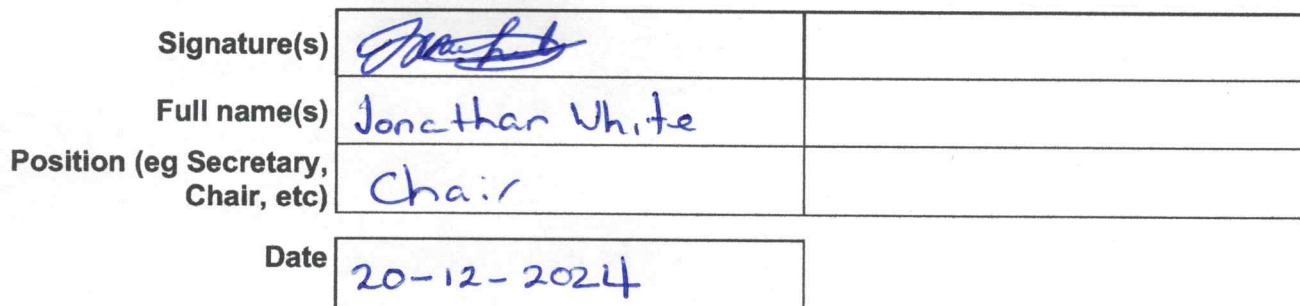 Signature(s)
Full name(s) Jonathan White
Position (eg Secretary,
Chair, etc) Chair
Date 20-12-2024